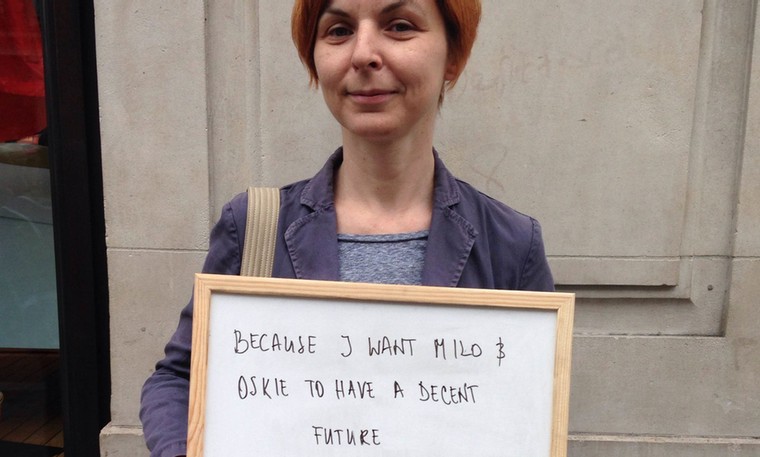 BECAUSE I WANT MILO &
OSKIE TO HAVE A DECENT
FUTURE